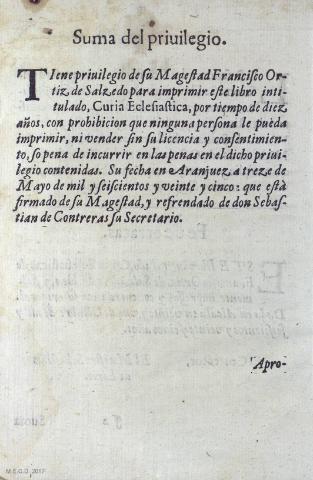 Suma del priuilegio.
TIene priuilegio de su Magestad Francisco Or-
tiz de Salzedo para imprimir este libro inti-
tulado, Curia Eclesiastica, por tiempo de diez
años, con prohibicion que ninguna persona le pueda
imprimir, ni vender sin su licencia y consentimien-
to, so pena de incurrir en las penas en el dicho priui-
legio contenidas. Su fecha en Aranjuez a treze de
Mayo de mil y seiscientos y veinte y cinco: que està
firmado de su Magestad, y refrendado de don Sebas-
tian de Contreras su Secretario.
Apro-
M.E.C.D. 2017